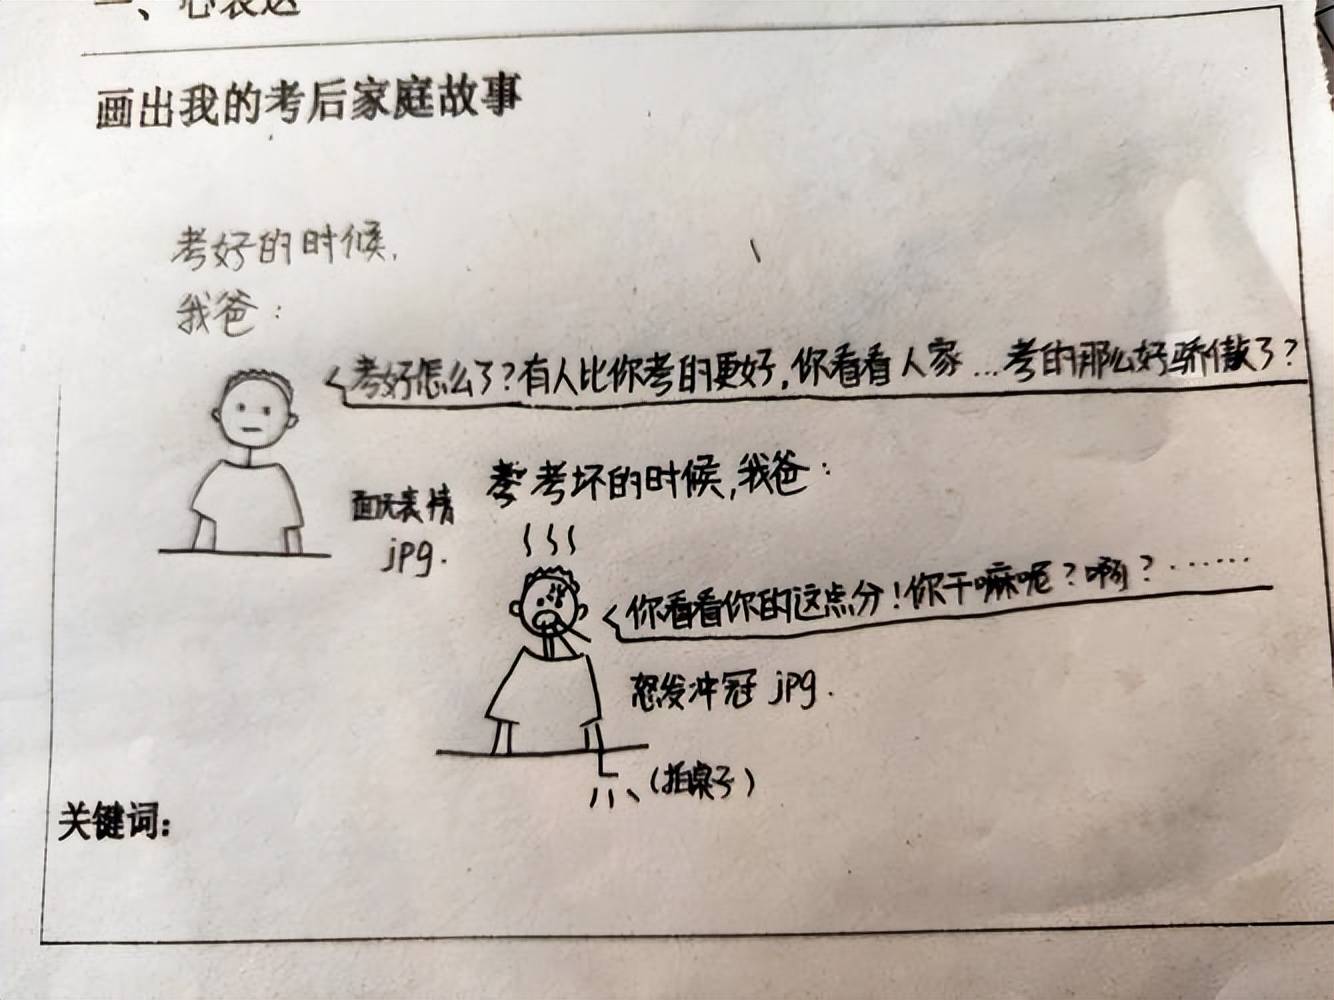 一、心表达
画出我的考后家庭故事
考好的时候,
我爸：
考好怎么了?有人比你考的更好,你看看人家...考的那么好骄傲了?
面无表情
jpg.
考坏的时候,我爸：
你看看你的这点分!你干嘛呢?啊?.......
怒发冲冠 jpg.
(拍桌子)
关键词：